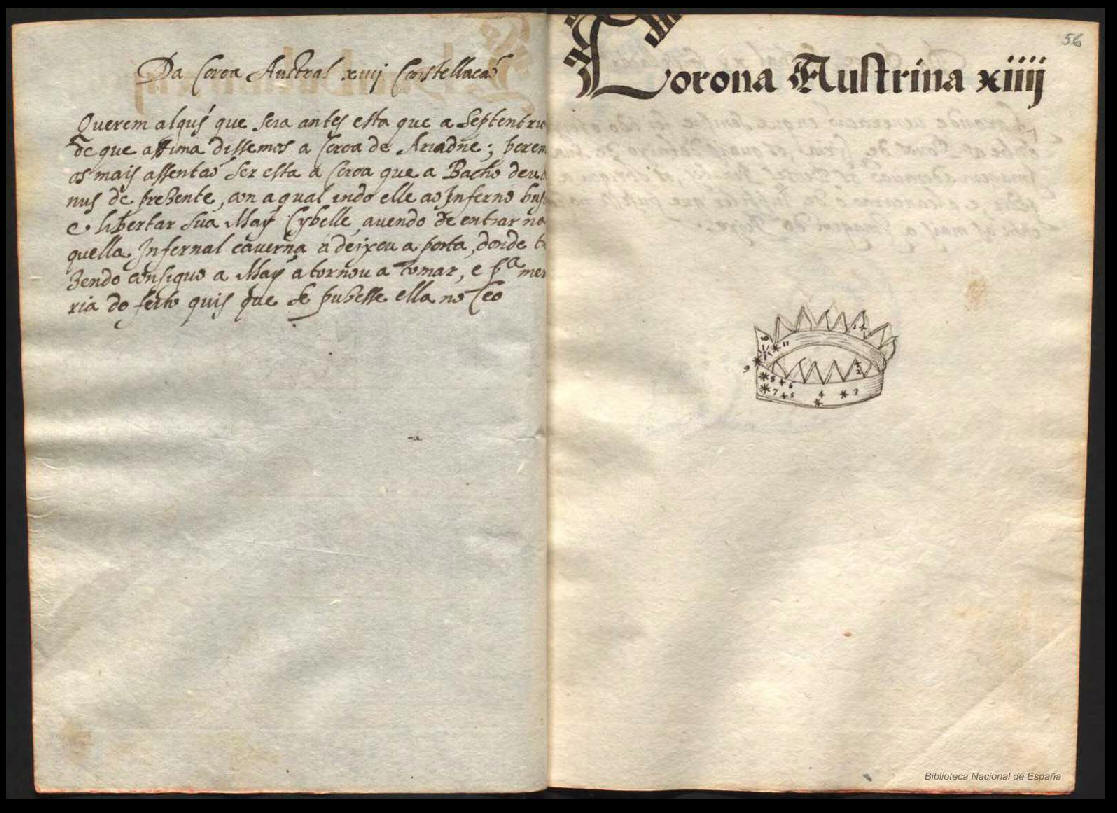 Da Coroa Austral xiiij Constellaçaõ
Querem algũs que seia antes esta que a Septentrio
de que assima dissemos a Coroa de Ariadne; porem
os mais assentaõ ser esta a Coroa que a Bacho deu
nus de presente, con a qual indo elle ao Inferno bus
e libertar sua May Cybelle, auendo de entrar na
quella Infernal cauerna a deixou a porta, donde t
zendo consiguo a May a tornou a tomar, e pª mem
ria do feito quis que se pusesse ella no Ceo
56
Corona Austrina xiiij
11
9
8
6
7
5
4
3
2
1
Biblioteca Nacional de España